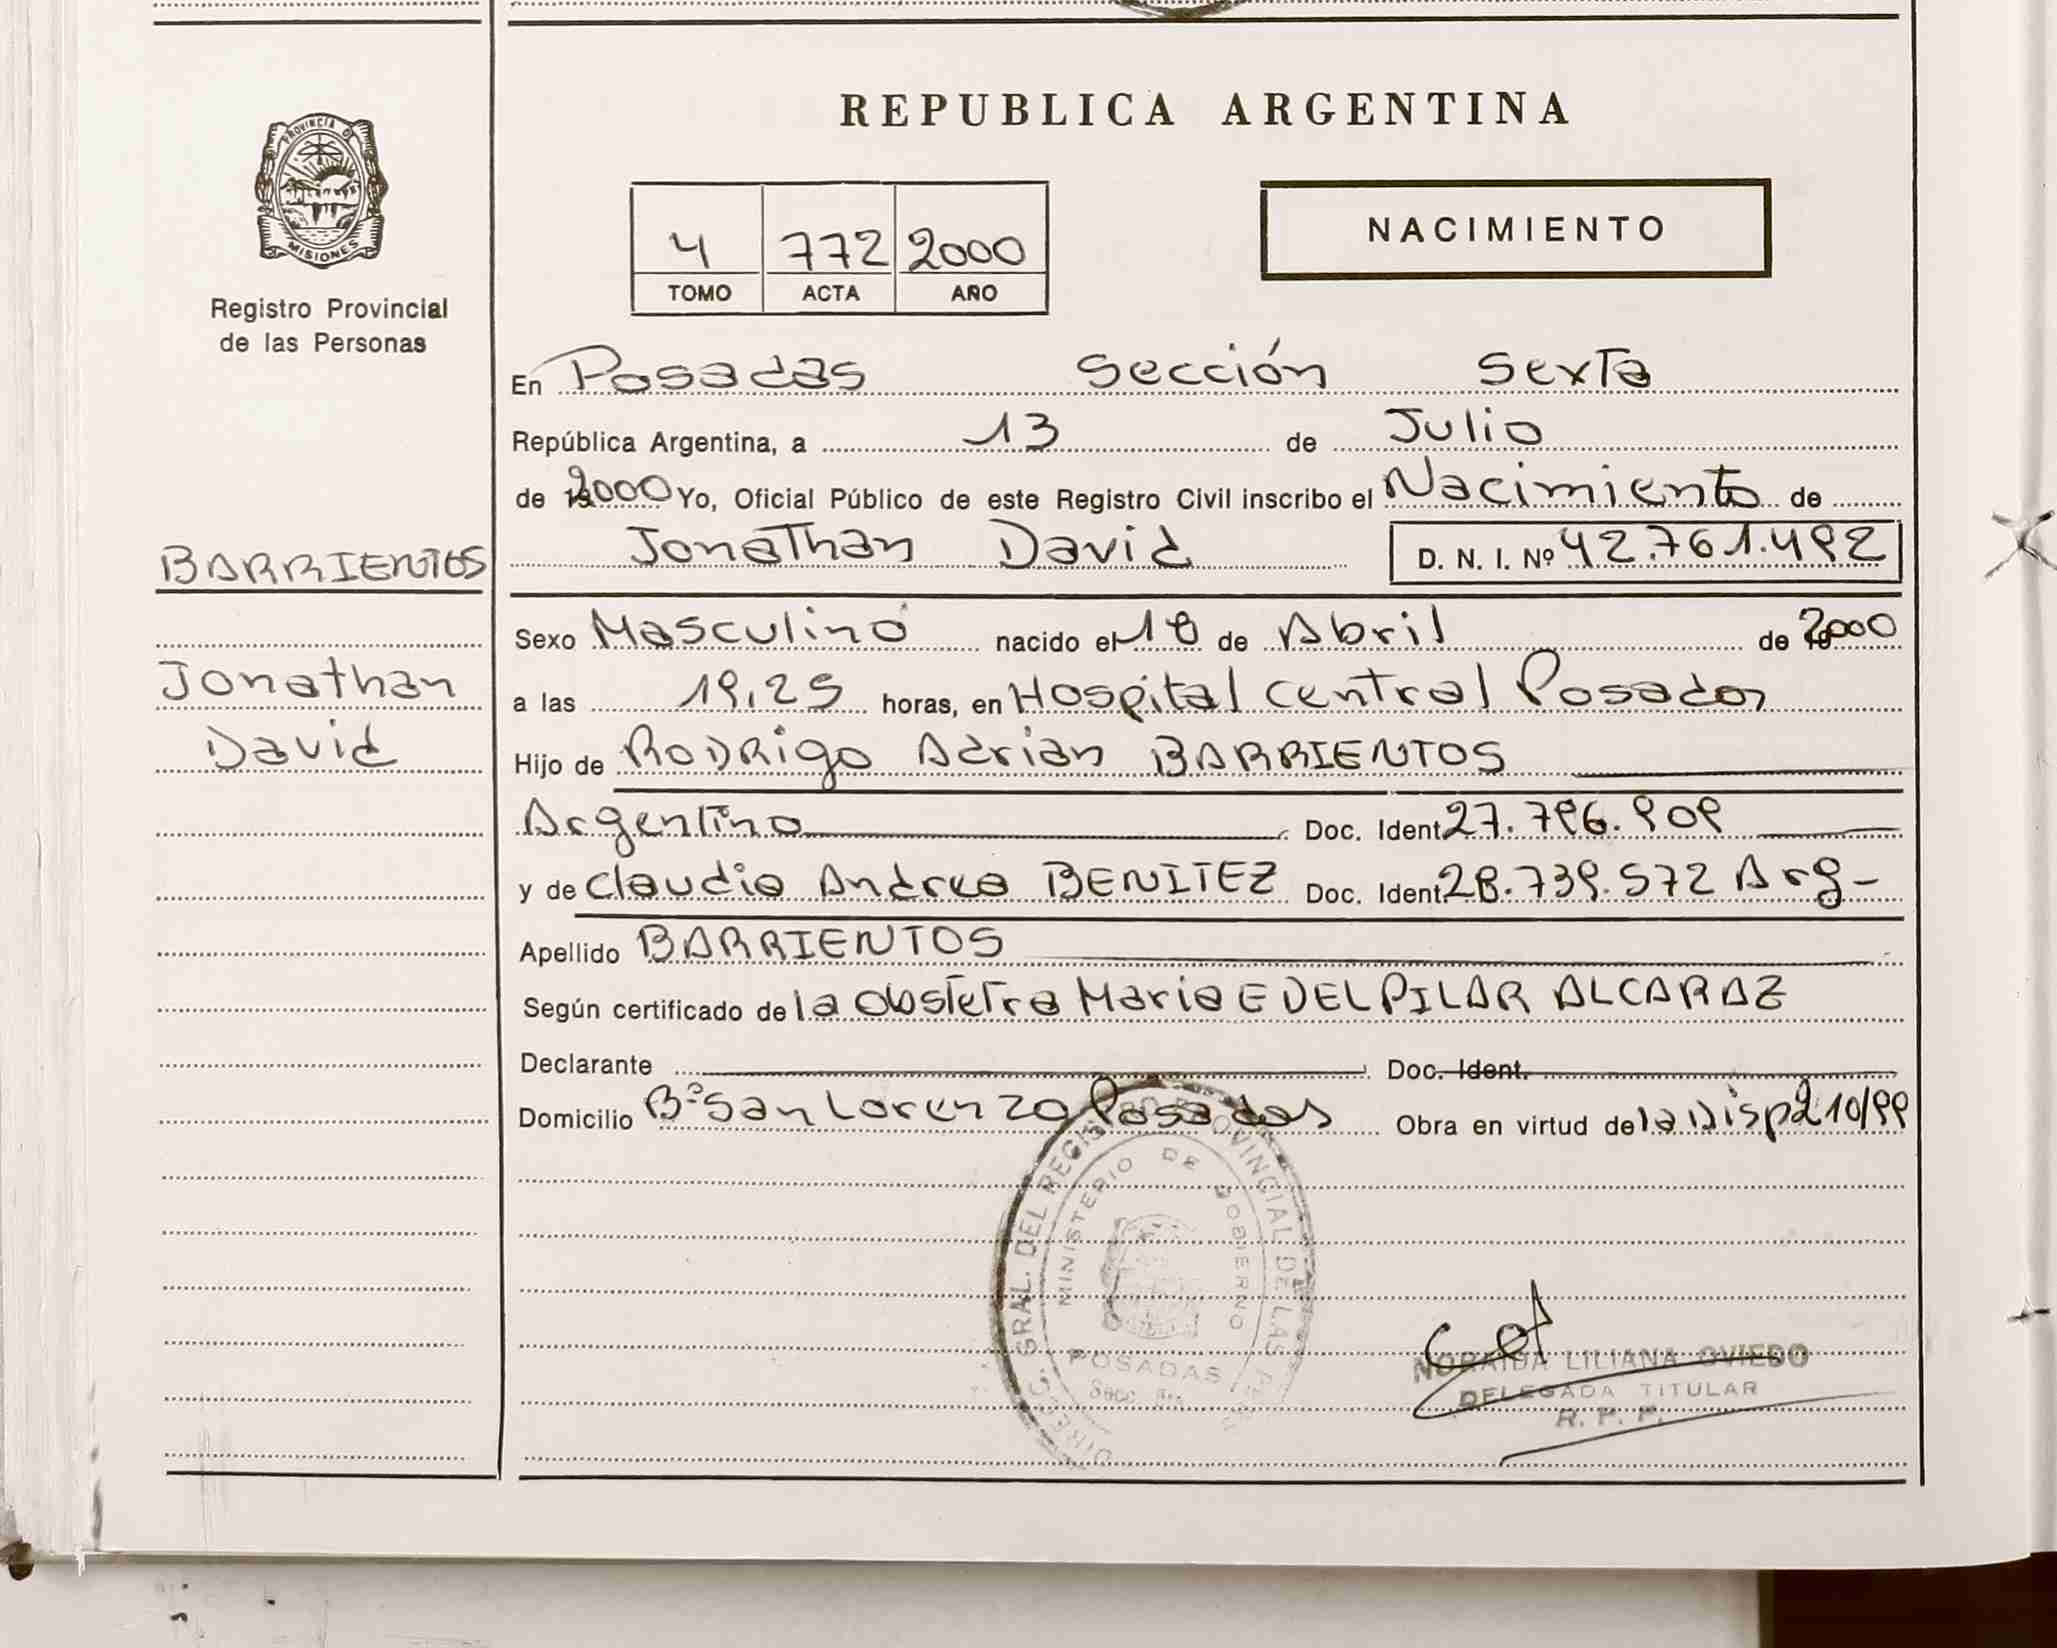 REPUBLICA ARGENTINA
PROVINCIA DE
MISIONES
Registro Provincial
de las Personas
4 772 2000
TOMO ACTA AÑO
NACIMIENTO
En Posadas Sección Sexta
República Argentina, a 13 de Julio
de 2000 Yo, Oficial Público de este Registro Civil inscribo el Nacimiento de
BARRIENTOS
Jonathan David D. N. I. Nº 42.761.492
Sexo Masculino nacido el 18 de Abril de 2000
Jonathan
David
a las 19,25 horas, en Hospital Central Posadas
Hijo de Rodrigo Adrian BARRIENTOS
Argentino Doc. Ident. 27.796.909
y de Claudia Andrea BENITEZ Doc. Ident. 28.739.572 Arg-
Apellido BARRIENTOS
Según certificado de la Obstetra Maria E DEL PILAR ALCARAZ
Declarante Doc. Ident.
Domicilio Bº San Lorenzo Posadas Obra en virtud de la Disp 210/99
DIREC. GRAL. DEL REGISTRO PROVINCIAL DE LAS PERS
MINISTERIO DE GOBIERNO
POSADAS
Secc.
NORAIDA LILIANA OVIEDO
DELEGADA TITULAR
R. P. P.